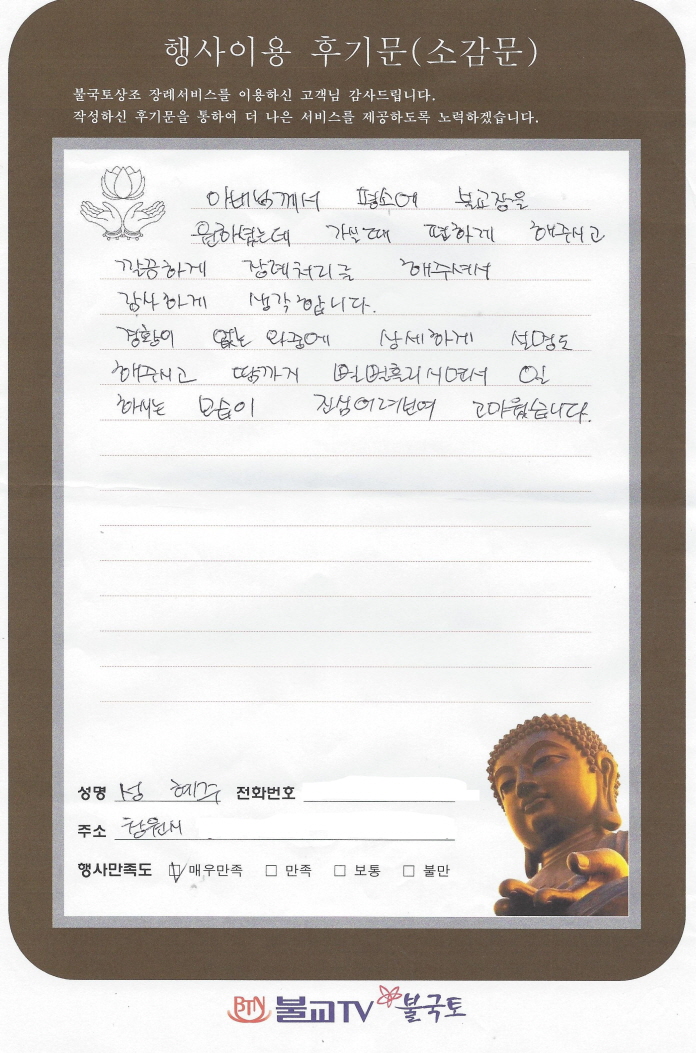 행사이용 후기문(소감문)
불국토상조 장례서비스를 이용하신 고객님 감사드립니다.
작성하신 후기문을 통하여 더 나은 서비스를 제공하도록 노력하겠습니다.
아버님께서 평소에 불교장을
원하셨는데 가실때 편하게 해주시고
깔끔하게 장례처리를 해주셔서
감사하게 생각합니다.
경황이 없는 와중에 상세하게 설명도
해주시고 땀까지 뻘뻘흘리시면서 일
하시는 모습이 진심어려보여 고마웠습니다.
성명 성혜주 전화번호
주소 창원시
행사만족도 ☑ 매우만족 □ 만족 □ 보통 □ 불만
BTN 불교TV 불국토